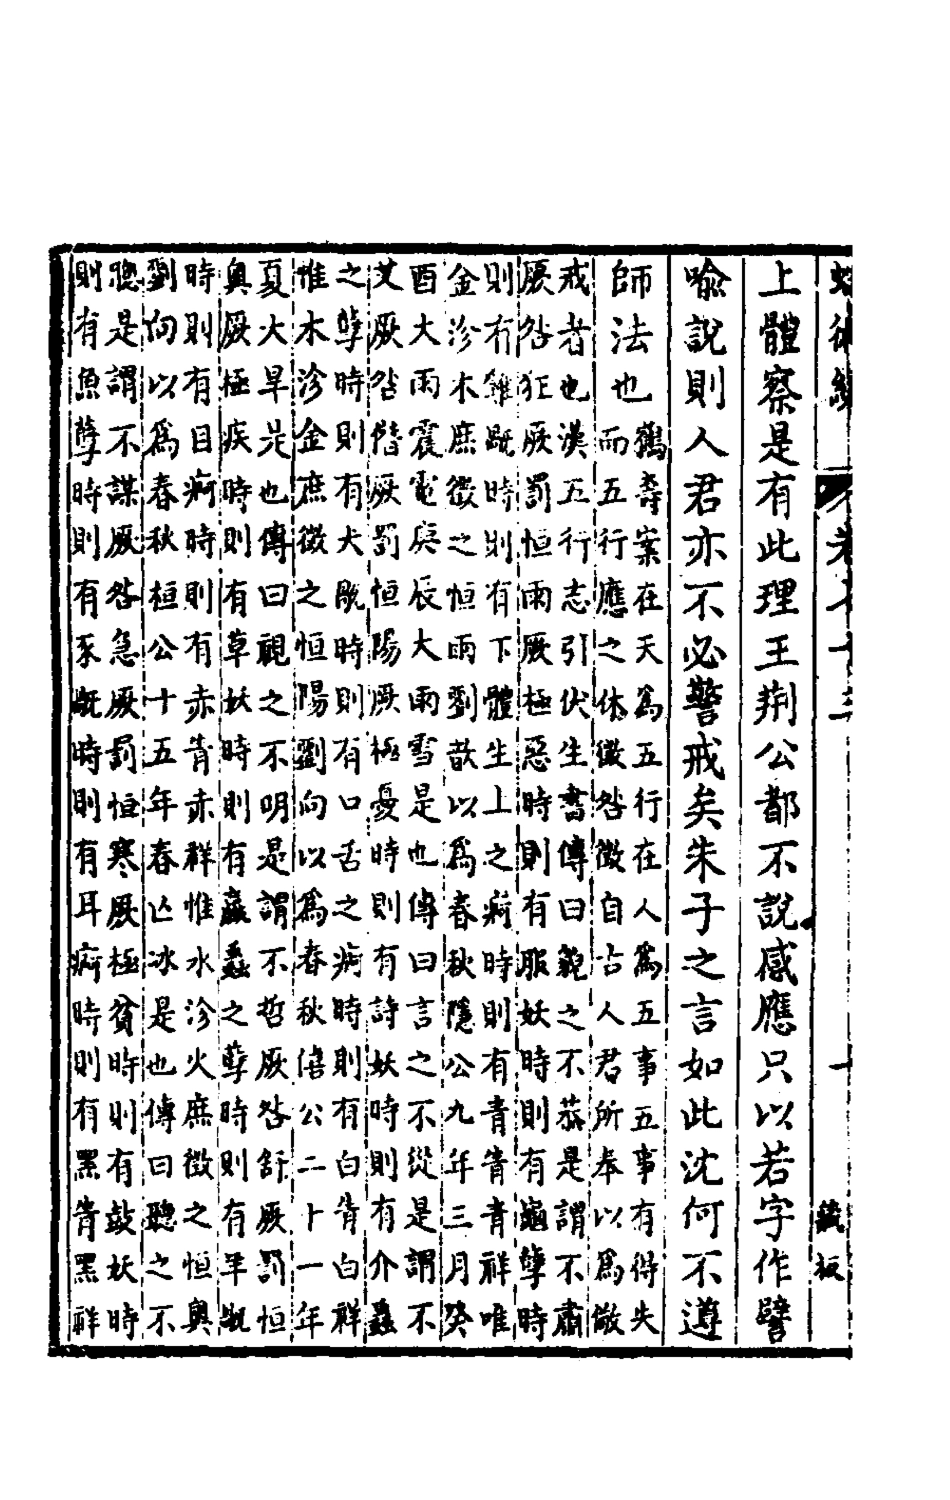 蛾術編
十三
十
藏板
上體察是有此理王荆公都不說感應只以若字作譬
喻說則人君亦不必警戒矣朱子之言如此沈何不遵
師法也
鶴壽案在天爲五行在人爲五事五事有得失
而五行應之休徵咎徵自古人君所奉以爲儆
戒者也漢五行志引伏生書傳曰貌之不恭是謂不肅
厥咎狂厥罰恒雨厥極惡時則有服妖時則有龜孽時
則有雞旤時則有下體生上之痾時則有青眚青祥唯
金沴木庶徵之恒雨劉歆以爲春秋隱公九年三月癸
酉大雨震電庚辰大雨雪是也傳曰言之不從是謂不
艾厥咎僭厥罰恒陽厥極憂時則有詩妖時則有介蟲
之孽時則有犬旤時則有口舌之痾時則有白眚白祥
惟木沴金庶徵之恒陽劉向以爲春秋僖公二十一年
夏大旱是也傳曰視之不明是謂不哲厥咎舒厥罰恒
奧厥極疾時則有草妖時則有蠃蟲之孽時則有羊旤
時則有目痾時則有赤眚赤祥惟水沴火庶徵之恒奧
劉向以爲春秋桓公十五年春亡冰是也傳曰聽之不
聰是謂不謀厥咎急厥罰恒寒厥極貧時則有鼓妖時
則有魚孽時則有豕旤時則有耳痾時則有黑眚黑祥